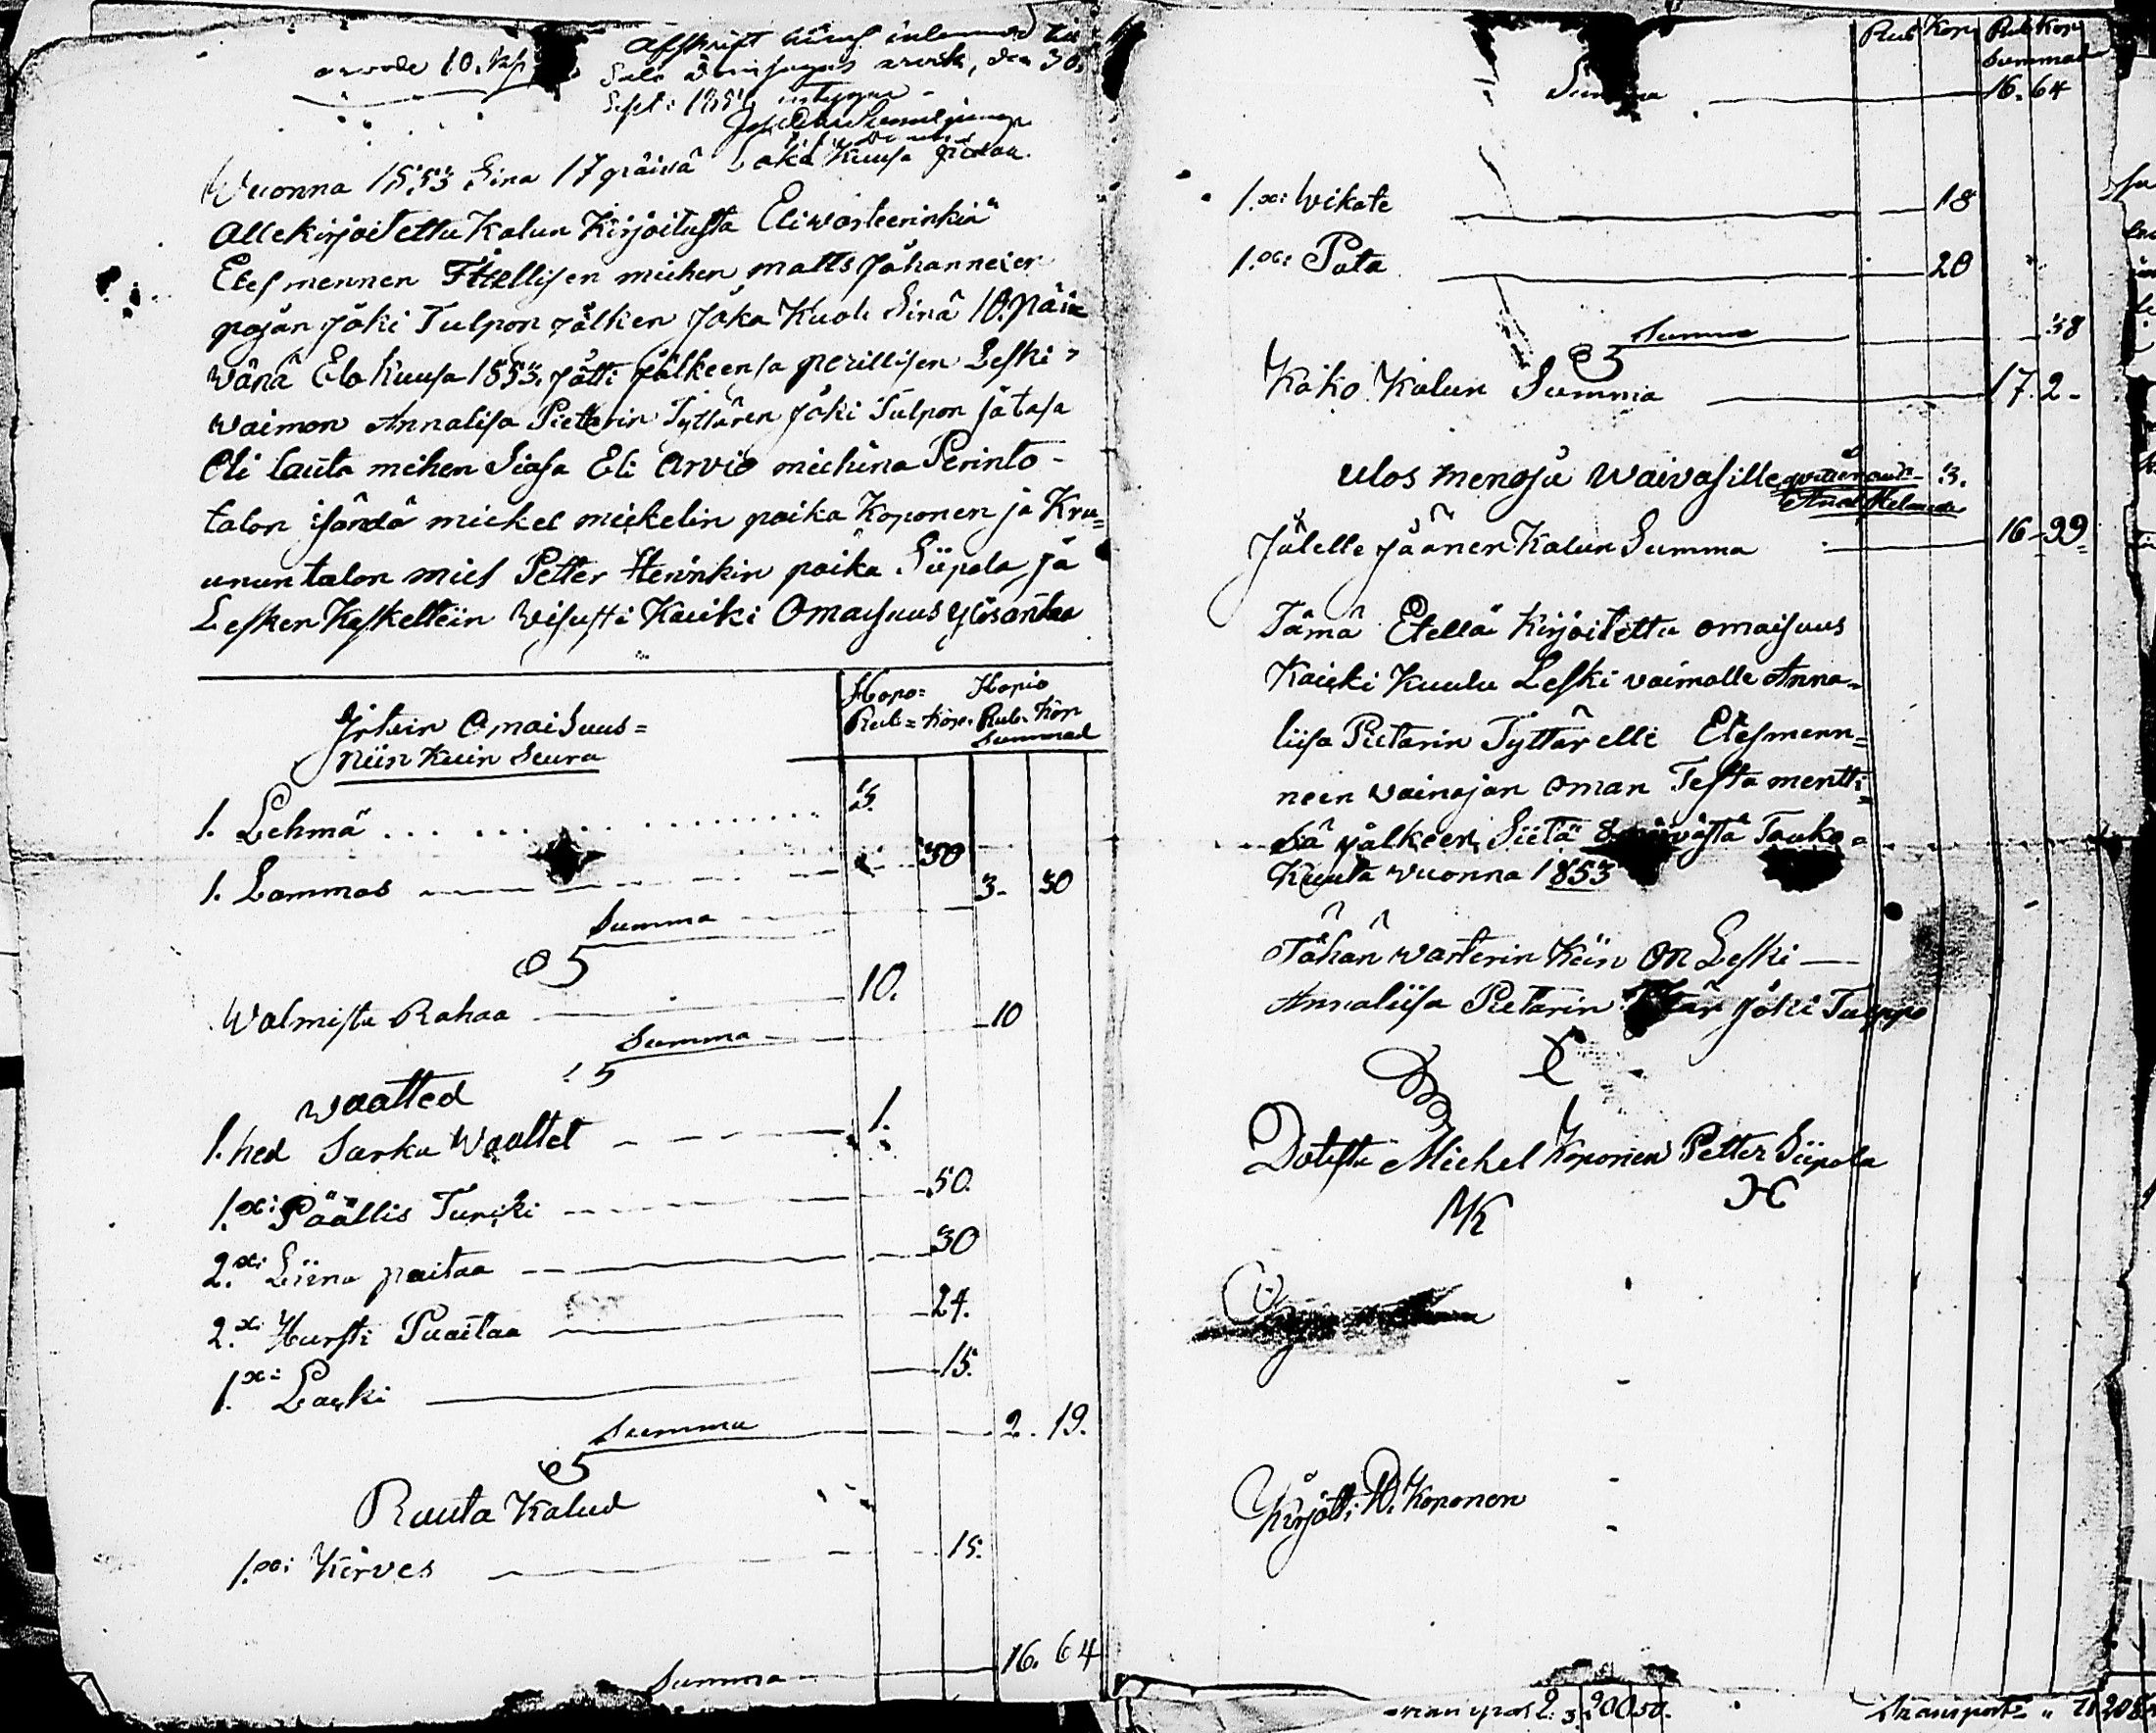 arvode 10. kop
Afskrift häraf inlemnad till
Sept: 1854 intygar
Wuonna 1853 Sinä 17 päivä Loka Kuusa pidettin
Allekirjoitettu Kalun Kirjoitusta Eli warteerinkiä
Etes mennen Ittellisen miehen matts Johannexen
pojan Jöki Tulpon jälken Joka Kuoli Sinä 10. päi=
wänä Elo Kuusa 1853. jätti jälkeensä perillisen Leski=
waimon Annalisa Pietarin Tyttären Jöki Tulpon ja tasa
Oli lauta mihen Siasa Eli Arvio miehinä Perinto-
talon isändä mickel mickelin poika Koponen ja Kru=
unun talon mies Petter Heninkin poika Siipola ja
Lesken Kaskelttiin Wisusti Kaicki Omaisuus ylösantaa
Hopo= Hopio
Rub= Kop. Rub. Kop
Summad
Irtain Omaisuus=
Niin Kuin Seura
1. Lehmä 3.
1. Lammas 30
Summa 3. 30
Walmista Rahaa 10.
Summa 10
Waatted
1. hed Sarka Waattet 1.
1.xi Päällis Turcki 50.
2.xi Liina paitaa 30
2.xi Hursti Paaitaa 24.
1.xi Lacki 15.
Summa 2. 19.
Rauta Kalud
1.xi Kirves 15.
Summa 16. 64
Rub Kop Rub Kop
Summad
Summa 16. 64
1.xi Wikate 18
1.xi Pata 20
Summa 38
Koko Kalun Summa 17. 2-
Ulos menoja Waivasille 3.
Jälelle jäänen Kalun Summa 16-99=
Tämä Etellä Kirjoitettu omaisuus
Kaicki Kuulu Leski vaimolle Anna-
liisa Pietarin Tyttärelle Etesmenn=
neen wainajan oman Testamentti=
sä jälkeen, Siitä 8 päivästä Touko=
Kuuta Wuonna 1853
Tähän warterin Kiin On Leski
Annaliisa Pietarin Tytär Jöki Tulppo
Dotista Michel Koponen Petter Siipola
MK
Kirjotti P. Koponen
Transport